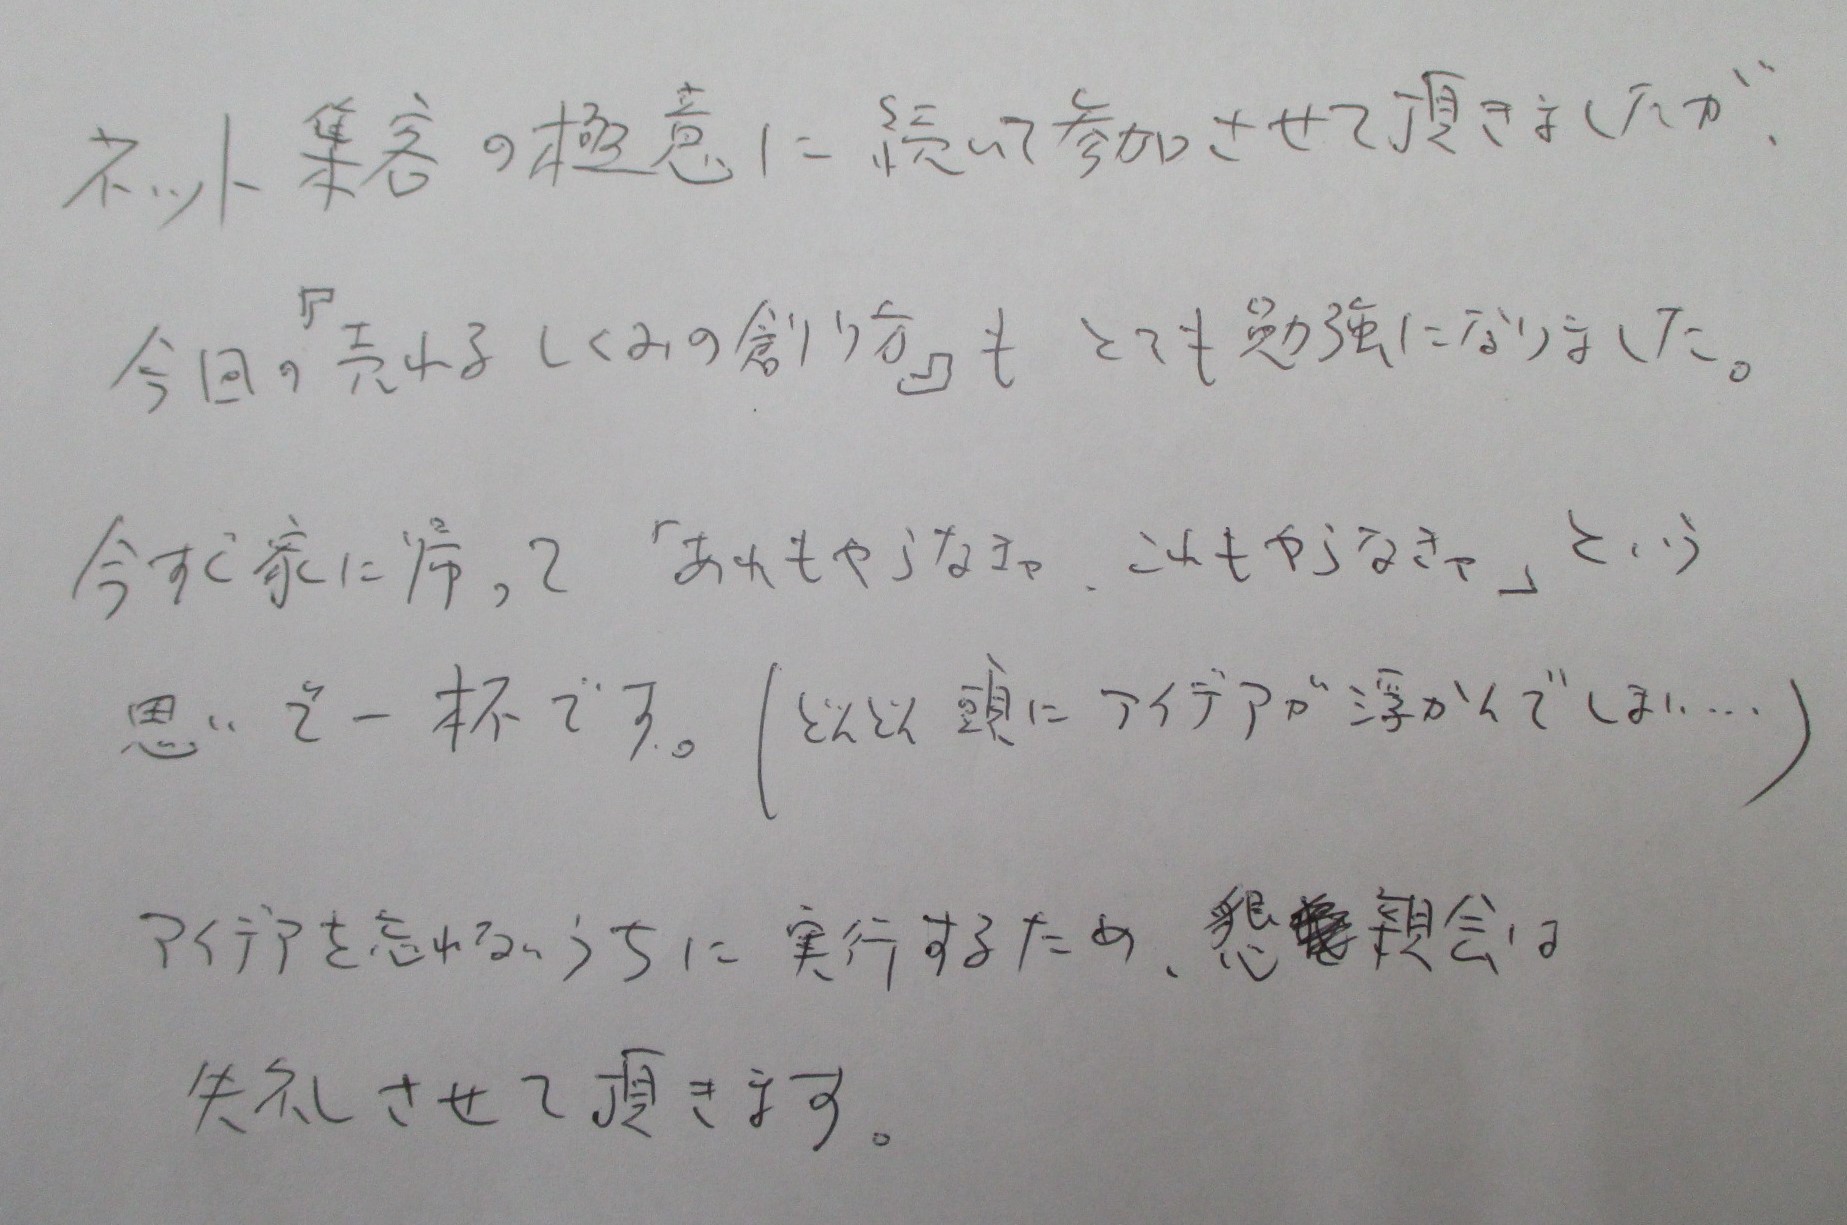 ネット集客の極意に続いて参加させて頂きましたが、
今回の『売れるしくみの創り方』もとても勉強になりました。
今すぐ家に帰って「あれもやらなきゃ、これもやらなきゃ」という
思いで一杯です。(どんどん頭にアイデアが浮かんでしまい…)
アイデアを忘れないうちに実行するため、懇親会は
失礼させて頂きます。